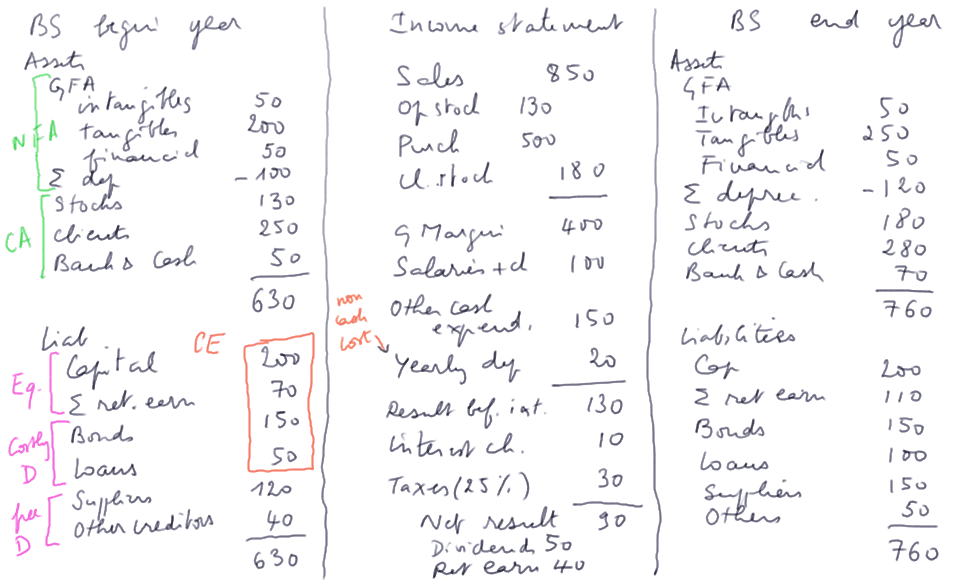 BS begin year
Assets
GFA
intangibles 50
tangibles 200
financial 50
Σ dep -100
NFA
Stocks 130
clients 250
Bank & Cash 50
CA
630
Liab
CE
Capital 200
Σ ret. earn 70
Eq.
Bonds 150
Loans 50
Costly
D
Suppliers 120
Other creditors 40
free
D
630
Income statement
Sales 850
Op stock 130
Purch 500
Cl. stock 180
G Margin 400
Salaries + cl 100
Other cash
expend. 150
non
cash
cost
Yearly dep 20
Result bef. int. 130
Interest ch. 10
Taxes (25%) 30
Net result 90
Dividends 50
Ret earn 40
BS end year
Assets
GFA
Intangibles 50
Tangibles 250
Financial 50
Σ deprec. -120
Stocks 180
clients 280
Bank & Cash 70
760
Liabilities
Cap 200
Σ ret earn 110
Bonds 150
Loans 100
Suppliers 150
Others 50
760